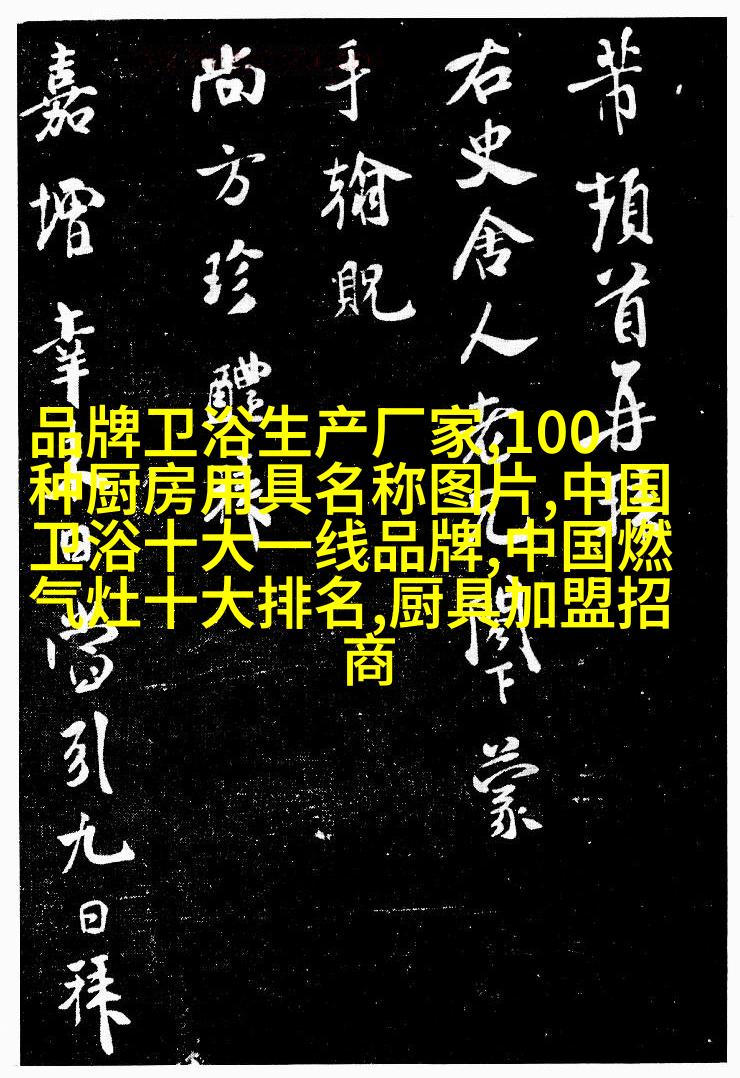 芾頓首再拜
右史舍人老兄閣下蒙
手翰貺
尚方珍醴
嘉增幸當引九日拜
品牌卫浴生产厂家,100
种厨房用具名称图片,中国
卫浴十大一线品牌,中国燃
气灶十大排名,厨具加盟招
商